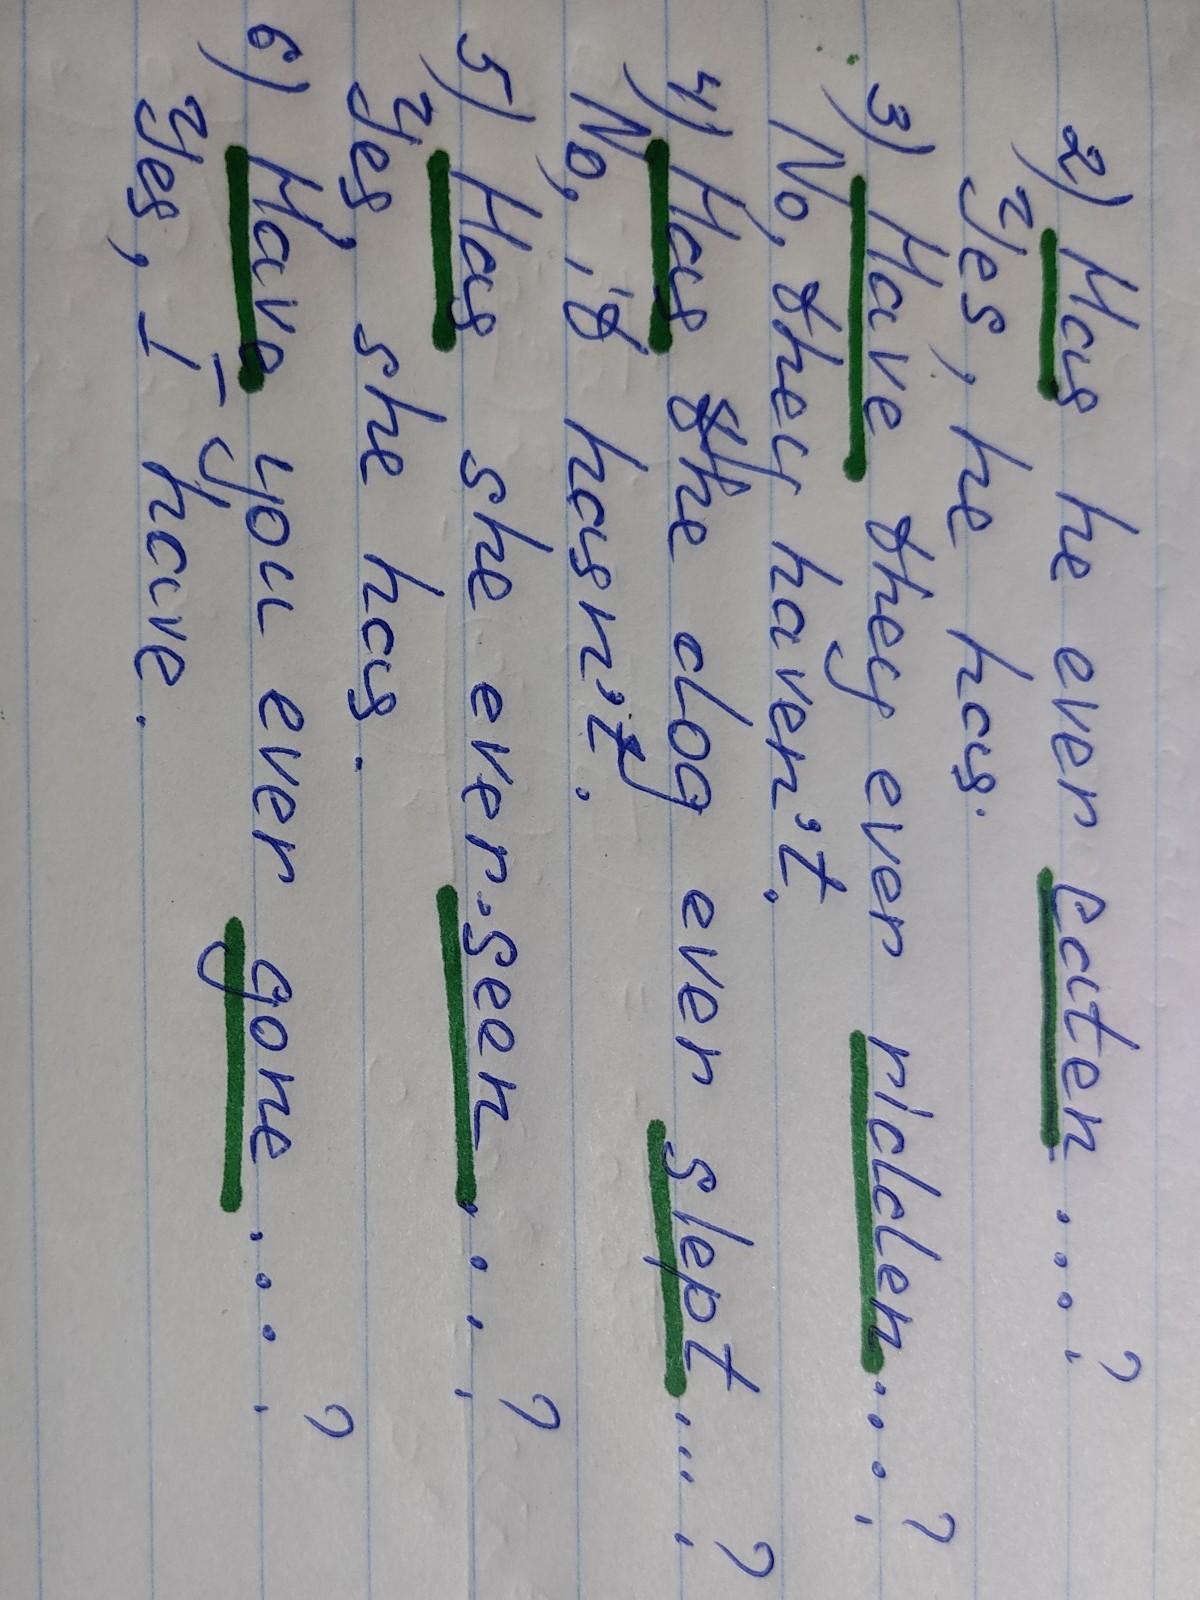 2) Has he ever eaten ....?
Yes, he has.
3) Have they ever ridden....?
No, they haven't.
4) Has the dog ever slept....?
No, it hasn't.
5) Has she ever seen....?
Yes, she has.
6) Have you ever gone....?
Yes, I have.